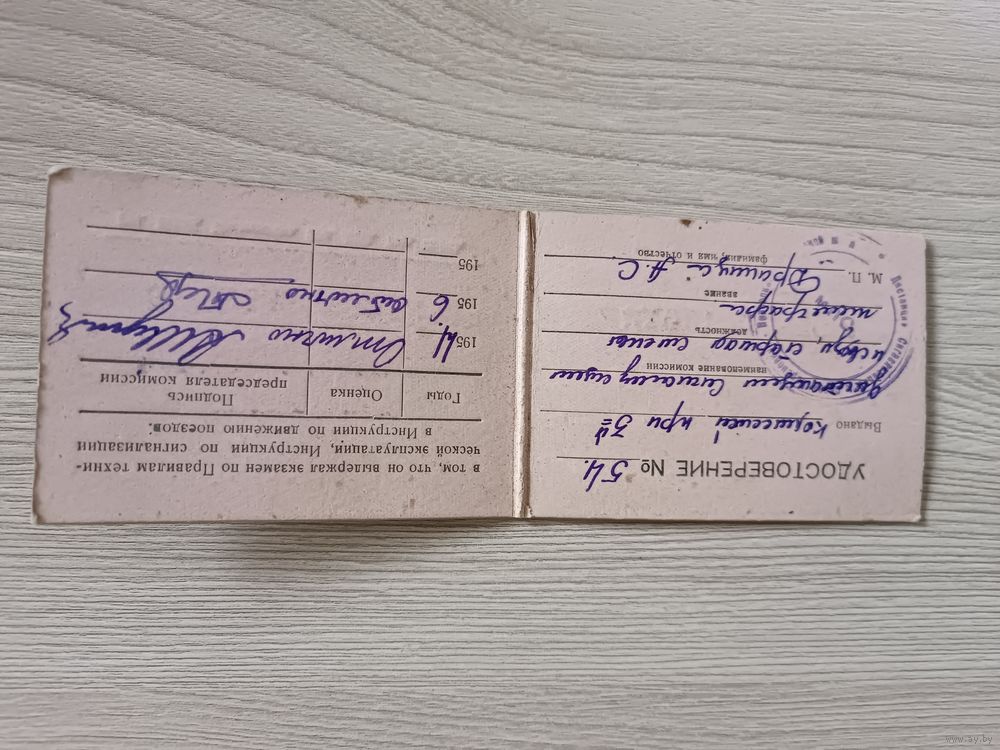 УДОСТОВЕРЕНИЕ № 54.
Выдано комиссией при 3й
дистанции сигнализации
наименование комиссии
и связи, старшая
должность
телеграфа
звание
А.С.
М. П. фамилия, имя и отчество
в том, что он выдержал экзамен по Правилам техни-
ческой эксплуатации, Инструкции по сигнализации
и Инструкции по движению поездов:
Годы Оценка Подпись
председателя комиссии
1954 Отлично
1956
195
Дистанция Сигнализ
www.ay.by